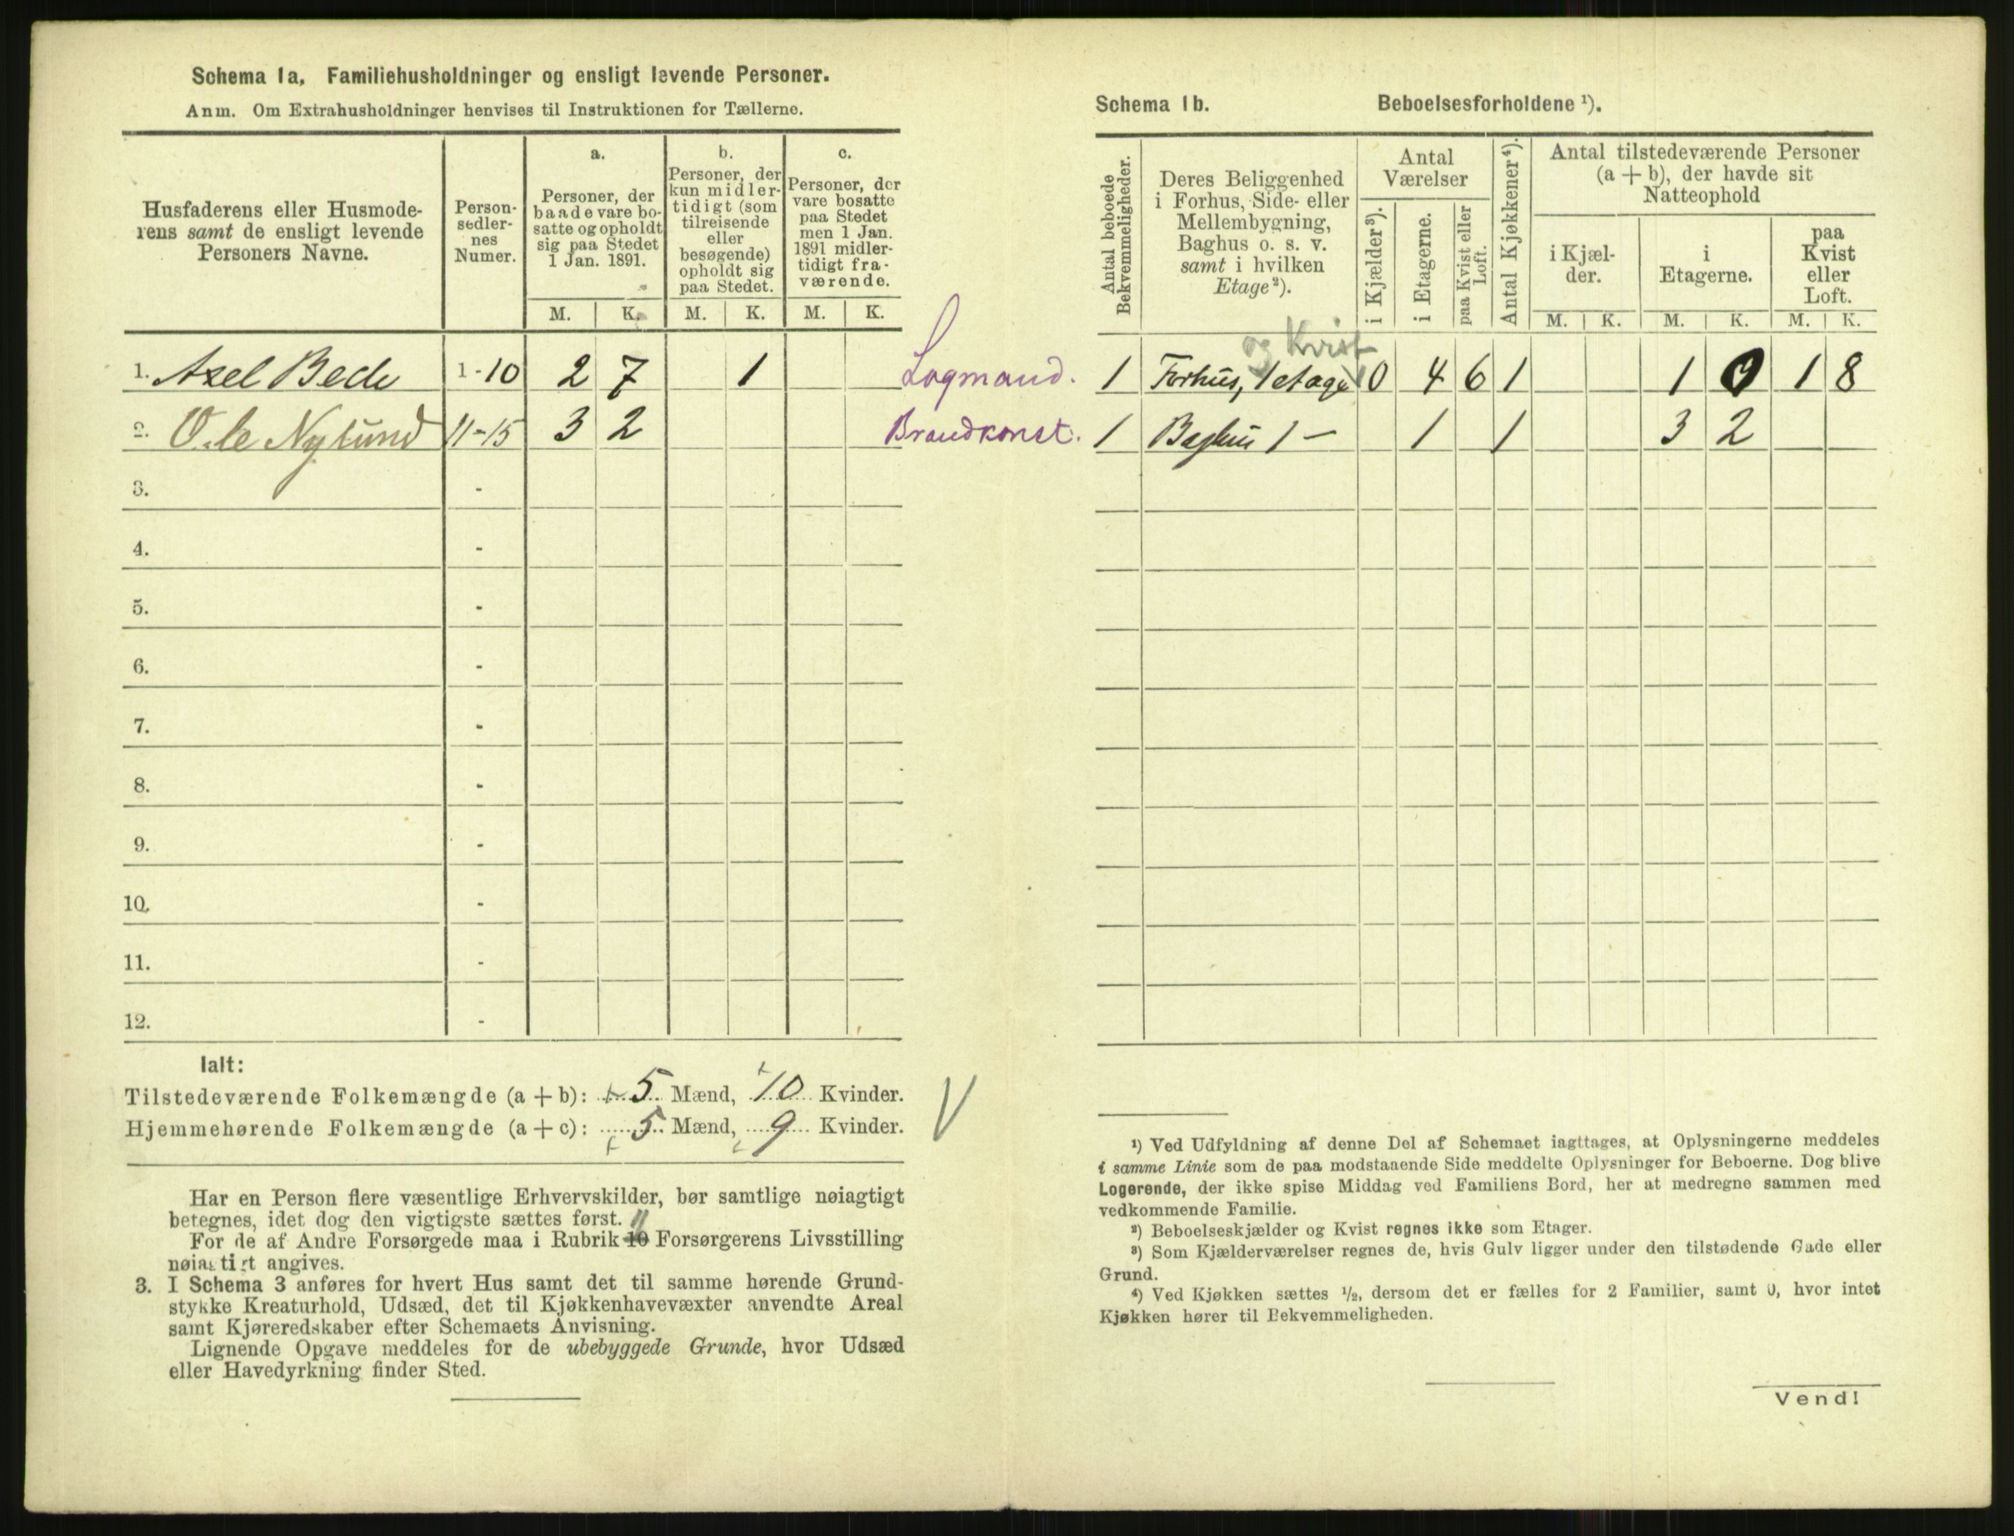 Schema 1a. Familiehusholdninger og ensligt levende Personer.
Anm. Om Extrahusholdninger henvises til Instruktionen for Tællerne.
Husfaderens eller Husmode-
rens samt de ensligt levende
Personers Navne.
Person-
sedler-
nes
Numer.
a.
Personer, der
baade vare bo-
satte og opholdt
sig paa Stedet
1 Jan. 1891.
b.
Personer, der
kun midler-
tidigt (som
tilreisende
eller
besøgende)
opholdt sig
paa Stedet.
c.
Personer, der
vare bosatte
paa Stedet
men 1 Jan.
1891 midler-
tidigt fra-
værende.
M. K. M. K. M. K.
1. Axel Bede 1-10 2 7 1 Lagmand.
2. Ole Nylund 11-15 3 2 Brandkonst.
3. -
4. -
5. -
6. -
7. -
8. -
9. -
10. -
11. -
12. -
Ialt:
Tilstedeværende Folkemængde (a + b): 5 Mænd, 10 Kvinder.
Hjemmehørende Folkemængde (a + c): 5 Mænd, 9 Kvinder.
Har en Person flere væsentlige Erhvervskilder, bør samtlige nøiagtigt
betegnes, idet dog den vigtigste sættes først.
11
For de af Andre Forsørgede maa i Rubrik 10 Forsørgerens Livsstilling
nøiagtigt angives.
3. I Schema 3 anføres for hvert Hus samt det til samme hørende Grund-
stykke Kreaturhold, Udsæd, det til Kjøkkenhavevæxter anvendte Areal
samt Kjøreredskaber efter Schemaets Anvisning.
Lignende Opgave meddeles for de ubebyggede Grunde, hvor Udsæd
eller Havedyrkning finder Sted.
Schema 1b. Beboelsesforholdene ¹).
Antal beboede
Bekvemmeligheder.
Deres Beliggenhed
i Forhus, Side- eller
Mellembygning,
Baghus o. s. v.
samt i hvilken
Etage²).
Antal
Værelser
i Kjælder³).
i Etagerne.
paa Kvist eller
Loft.
Antal Kjøkkener⁴).
Antal tilstedeværende Personer
(a + b), der havde sit
Natteophold
i Kjæl-
der.
i
Etagerne.
paa
Kvist
eller
Loft.
M. K. M. K. M. K.
og Kvist
1 Forhus, 1 etage 0 4 6 1 1 0 1 8
1 Baghus 1 – 1 1 3 2
¹) Ved Udfyldning af denne Del af Schemaet iagttages, at Oplysningerne meddeles
i samme Linie som de paa modstaaende Side meddelte Oplysninger for Beboerne. Dog blive
Logerende, der ikke spise Middag ved Familiens Bord, her at medregne sammen med
vedkommende Familie.
²) Beboelseskjælder og Kvist regnes ikke som Etager.
³) Som Kjælderværelser regnes de, hvis Gulv ligger under den tilstødende Gade eller
Grund.
⁴) Ved Kjøkken sættes ½, dersom det er fælles for 2 Familier, samt 0, hvor intet
Kjøkken hører til Bekvemmeligheden.
Vend!